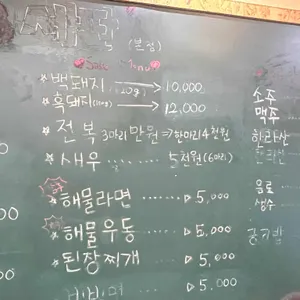 (본점)
백돼지 → 10,000
흑돼지 → 12,000
전복 3마리 만원 ⇒ 한마리 4천원
새우 ...... 5천원(6마리)
해물라면 ...... → 5,000
해물우동 ...... → 5,000
된장찌개 ...... → 5,000
5,000
소주
맥주
한라산
음료
생수
공기밥